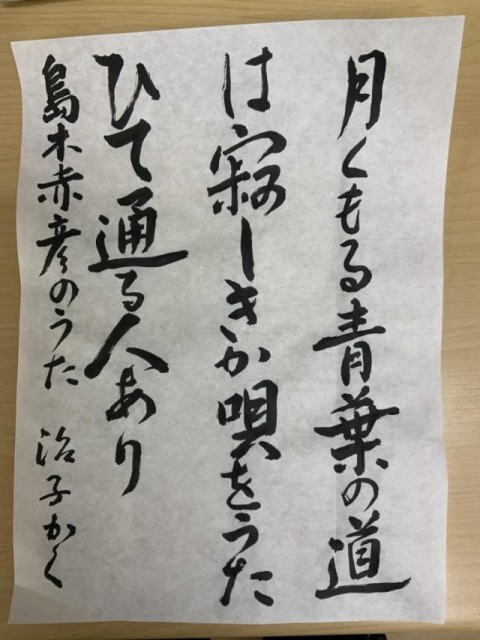 月くもる青葉の道
は寂しきか唄をうた
ひて通る人あり
島木赤彦のうた 治子かく